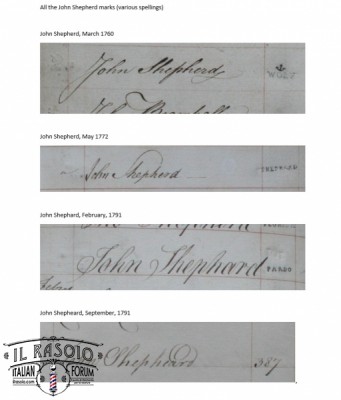 All the John Shepherd marks (various spellings)
John Shepherd, March 1760
John Shepherd
John Shepherd, May 1772
John Shepherd
John Shephard, February, 1791
John Shephard
PARGO
John Shepheard, September, 1791
Shepheard 387
IL RASOIO
ITALIAN FORUM
ilrasoio.com